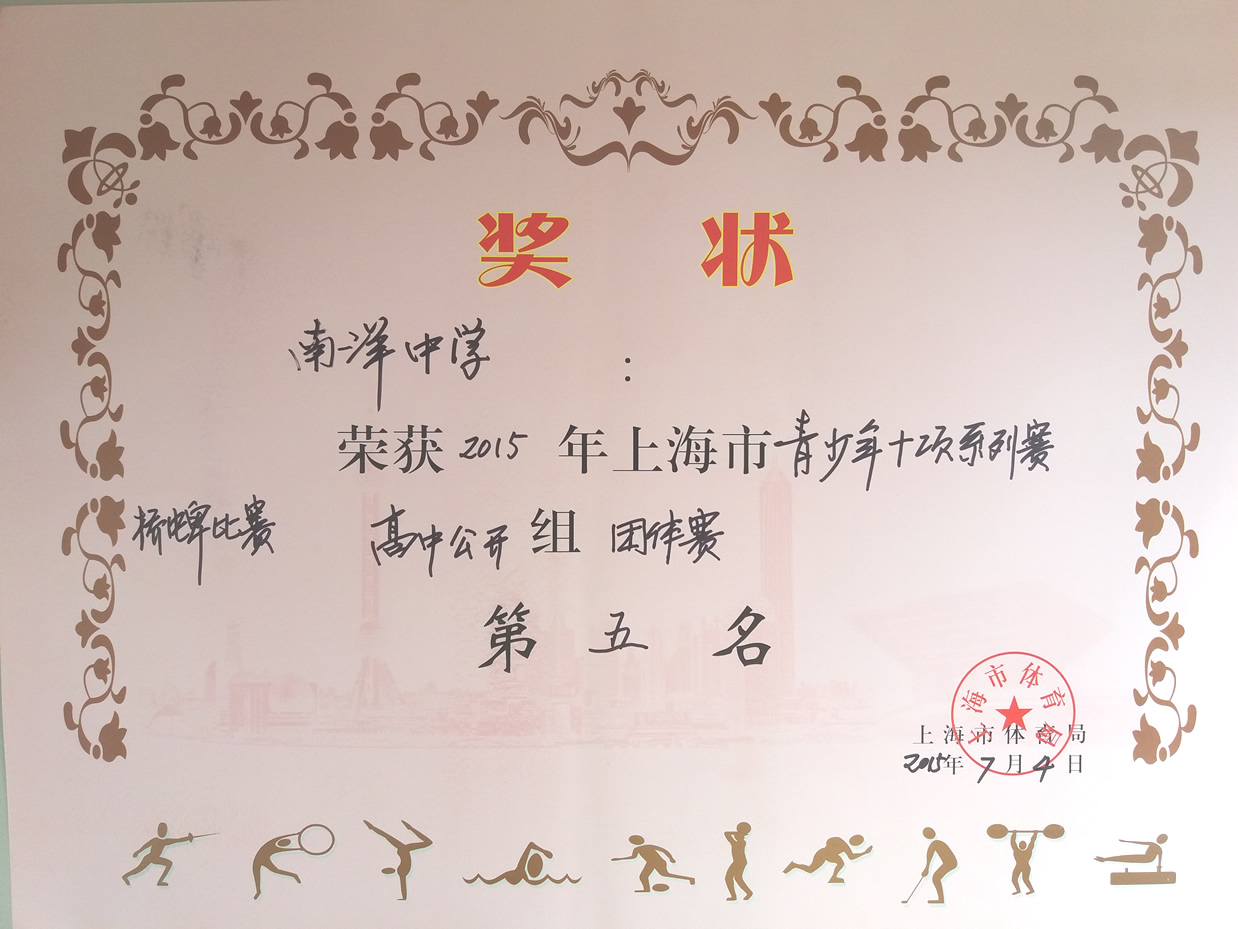 奖状
南洋中学：
荣获2015年上海市青少年十项系列赛
桥牌比赛 高中公开组 团体赛
第五名
上海市体育局
上海市体育局
2015年7月4日